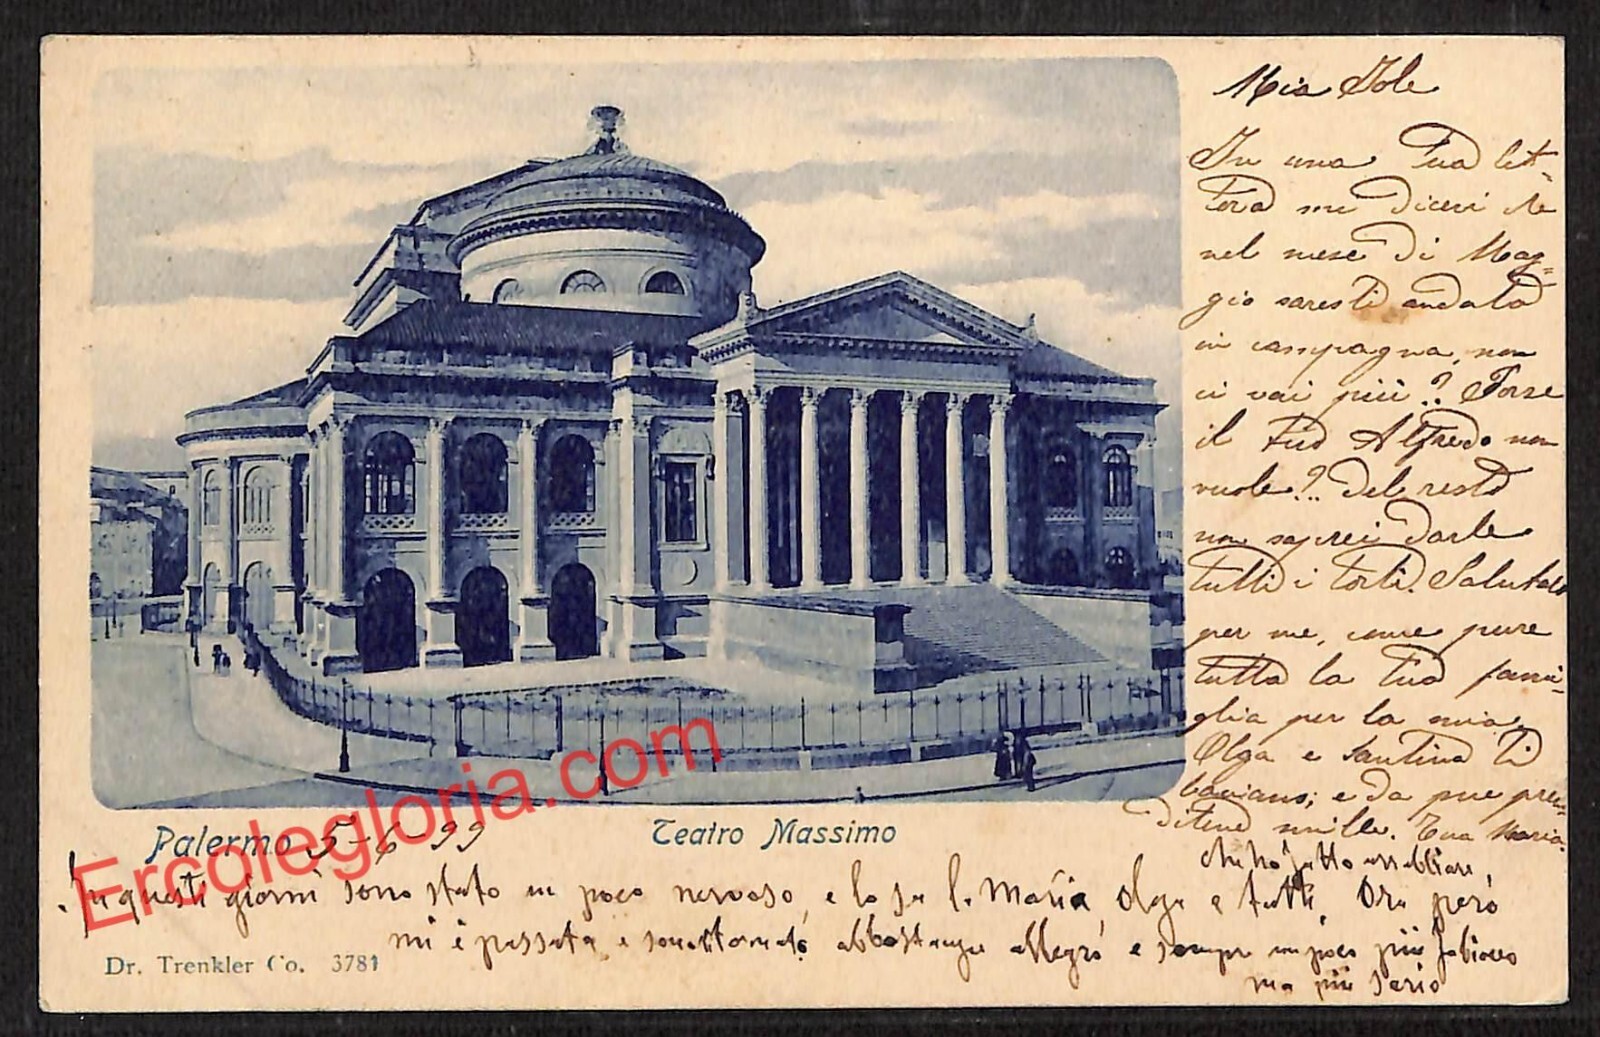 Mia Iole
In una tua let-
tera mi dicevi che
nel mese di Mag-
gio saresti andata
in campagna, non
ci vai più? Forse
il tuo Alfredo non
vuole?.. Del resto
non saprei darle
tutti i torti. Salutalo
per me, come pure
tutta la tua fami-
glia per la mia,
Olga e Santina ti
baciano; e da me pren-
ditene mille. Tua Maria.
Palermo 5-6 99
Teatro Massimo
che ho fatto
In questi giorni sono stato un poco nervoso, e lo sa Maria, Olga e tutti. Ora però
mi è passata e sono tornato abbastanza allegro e sempre un poco più
ma più serio
Dr. Trenkler Co. 3781
Ercolegloria.com